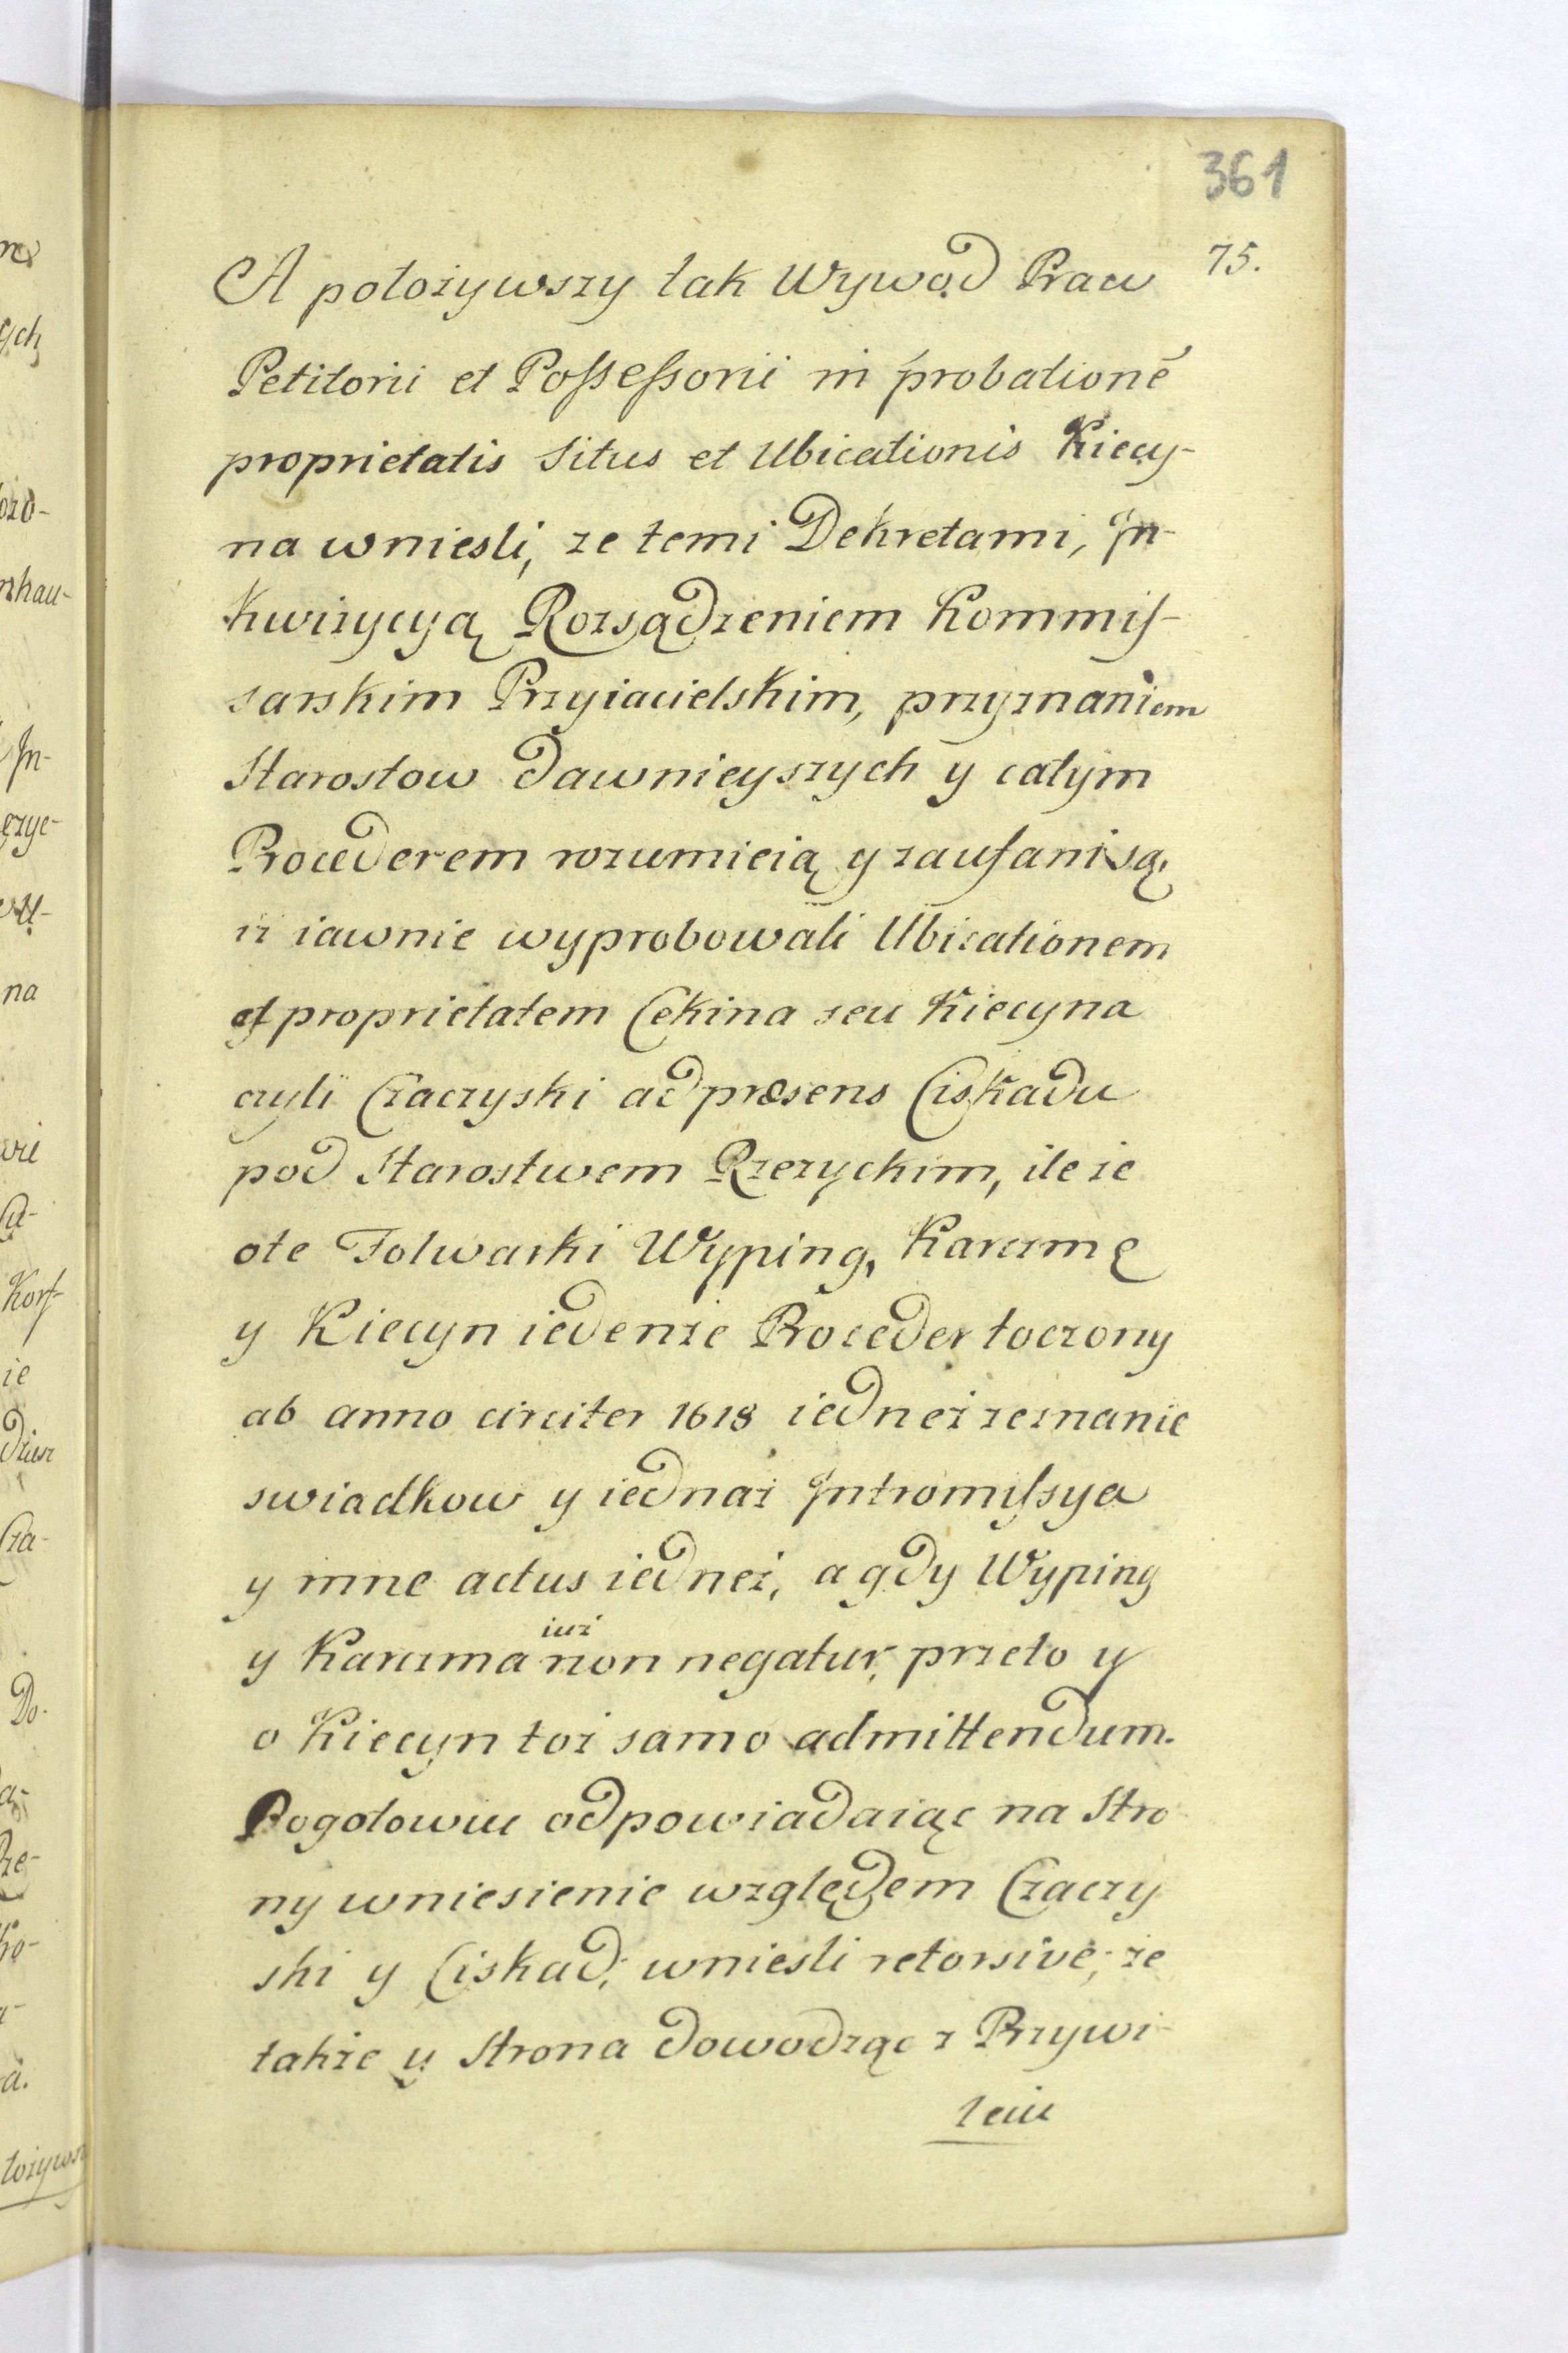 361
75.
A położywszy tak Wywod Praw
Petitorii et Possessorii in probationē
proprietatis Situs et Ubicationis Kiecy-
na wniesli, ze temi Dekretami, In-
kwizycyą Rozsądzeniem Kommis-
sarskim Przyiacielskim, przyznaniem
Starostow dawnieyszych y całym
Procederem rozumieią y zaufani są,
iż iawnie wyprobowali Ubicationem
et proprietatem Cekina seu Kiecyna
czyli Czaczyski ad præsens Ciskadu
pod Starostwem Rzezyckim, ile ze
o te Folwarki Wyping, Karczmę
y Kiecyn iedenże Proceder toczony
ab anno circiter 1618 iedneż zeznanie
swiadkow y iednaż Intromissya
y inne actus iedneż, a gdy Wyping
iuż
y Karczma non negatur, przeto y
o Kiecyn toż samo admittendum.
Pogotowiu odpowiadaiąc na Stro
ny wniesienie względem Czaczy
ski y Ciskad, wniesli retorsive, że
takze y Strona dowodząc z Przywi-
leiu